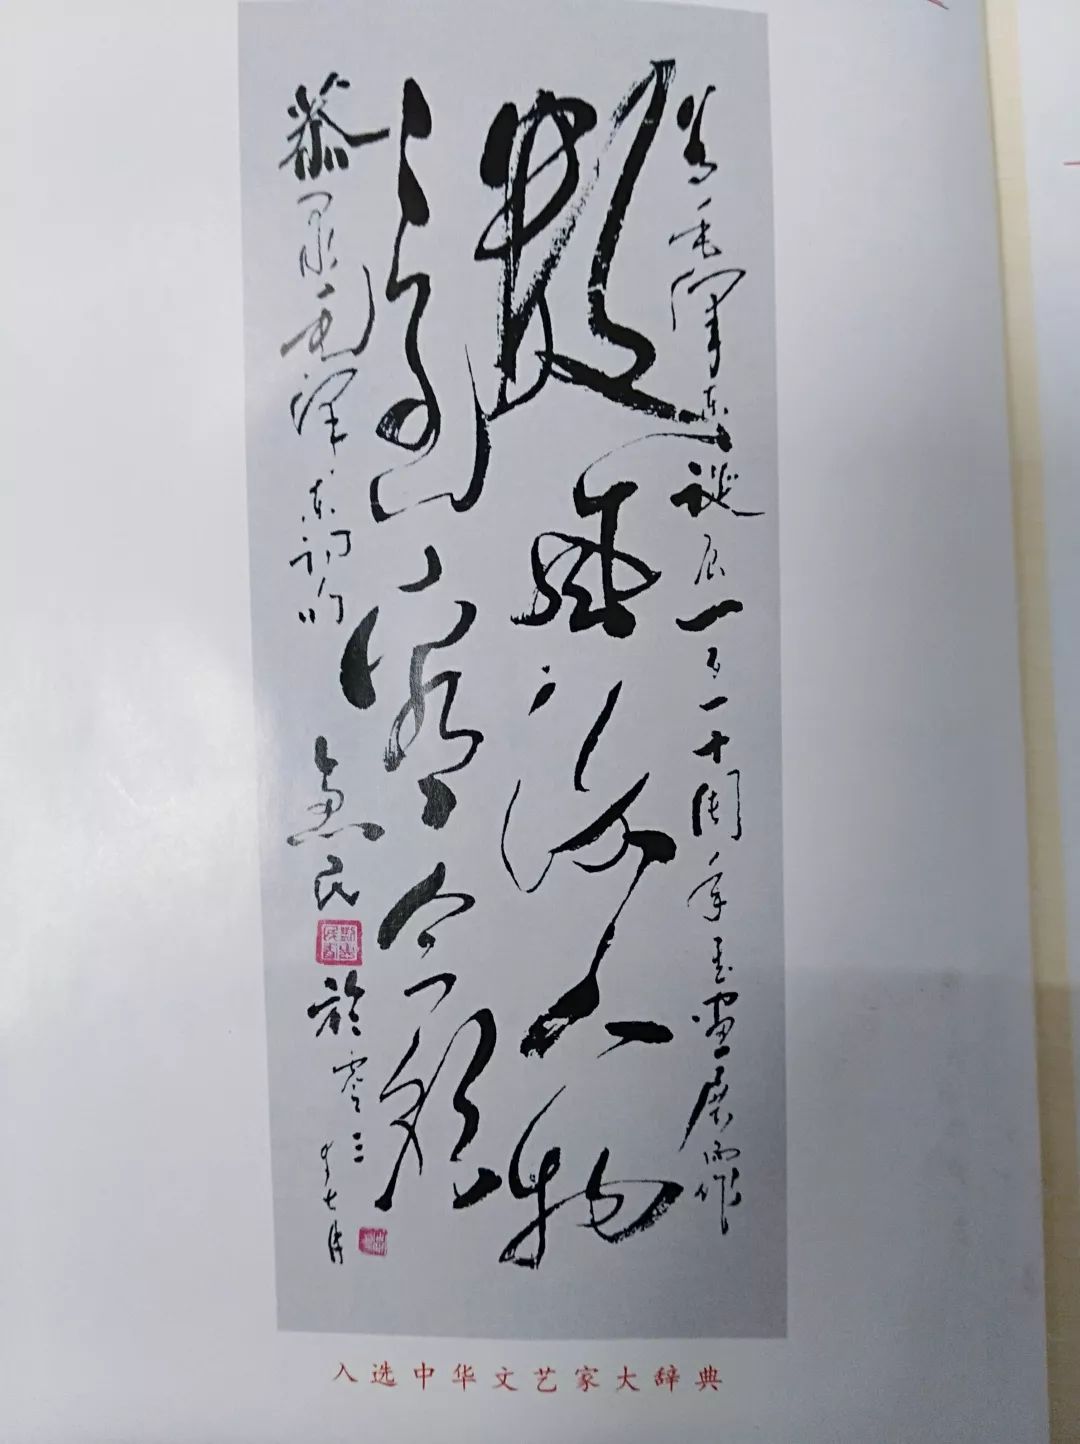 为毛泽东诞辰一百一十周年书画展而作
数风流人物
还看今朝
恭录毛泽东词句
於零三年七月
入选中华文艺家大辞典